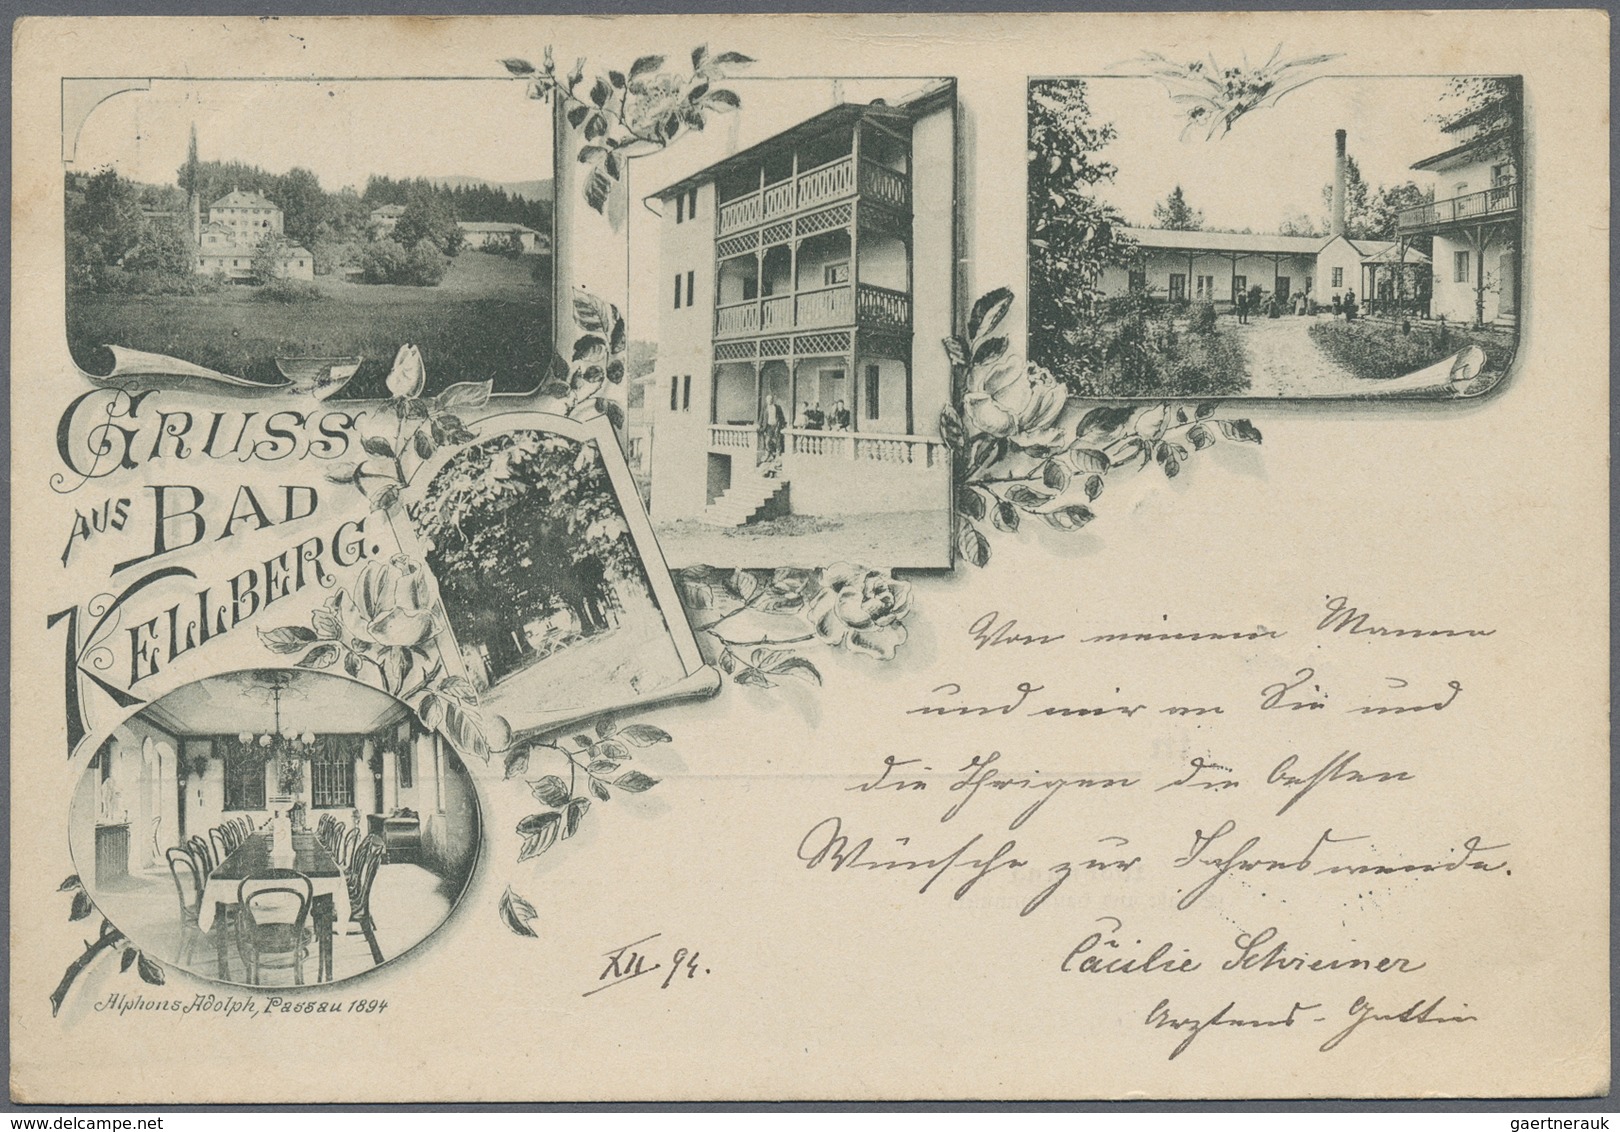 GRUSS
AUS BAD
KELLBERG.
Alphons Adolph, Passau 1894
Von meinem Manne
und mir an Sie und
die Ihrigen die besten
Wünsche zur Jahreswende.
XII. 94.
Cäcilie Schreiner
Arztens-Gattin
gaertnerauk